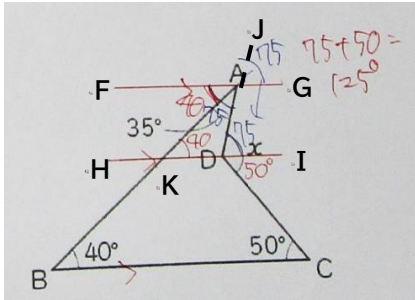 J
75
75+50=
125°
F
A
G
40
75
35°
40
75
x
H
D
50°
I
K
40°
50°
B
C